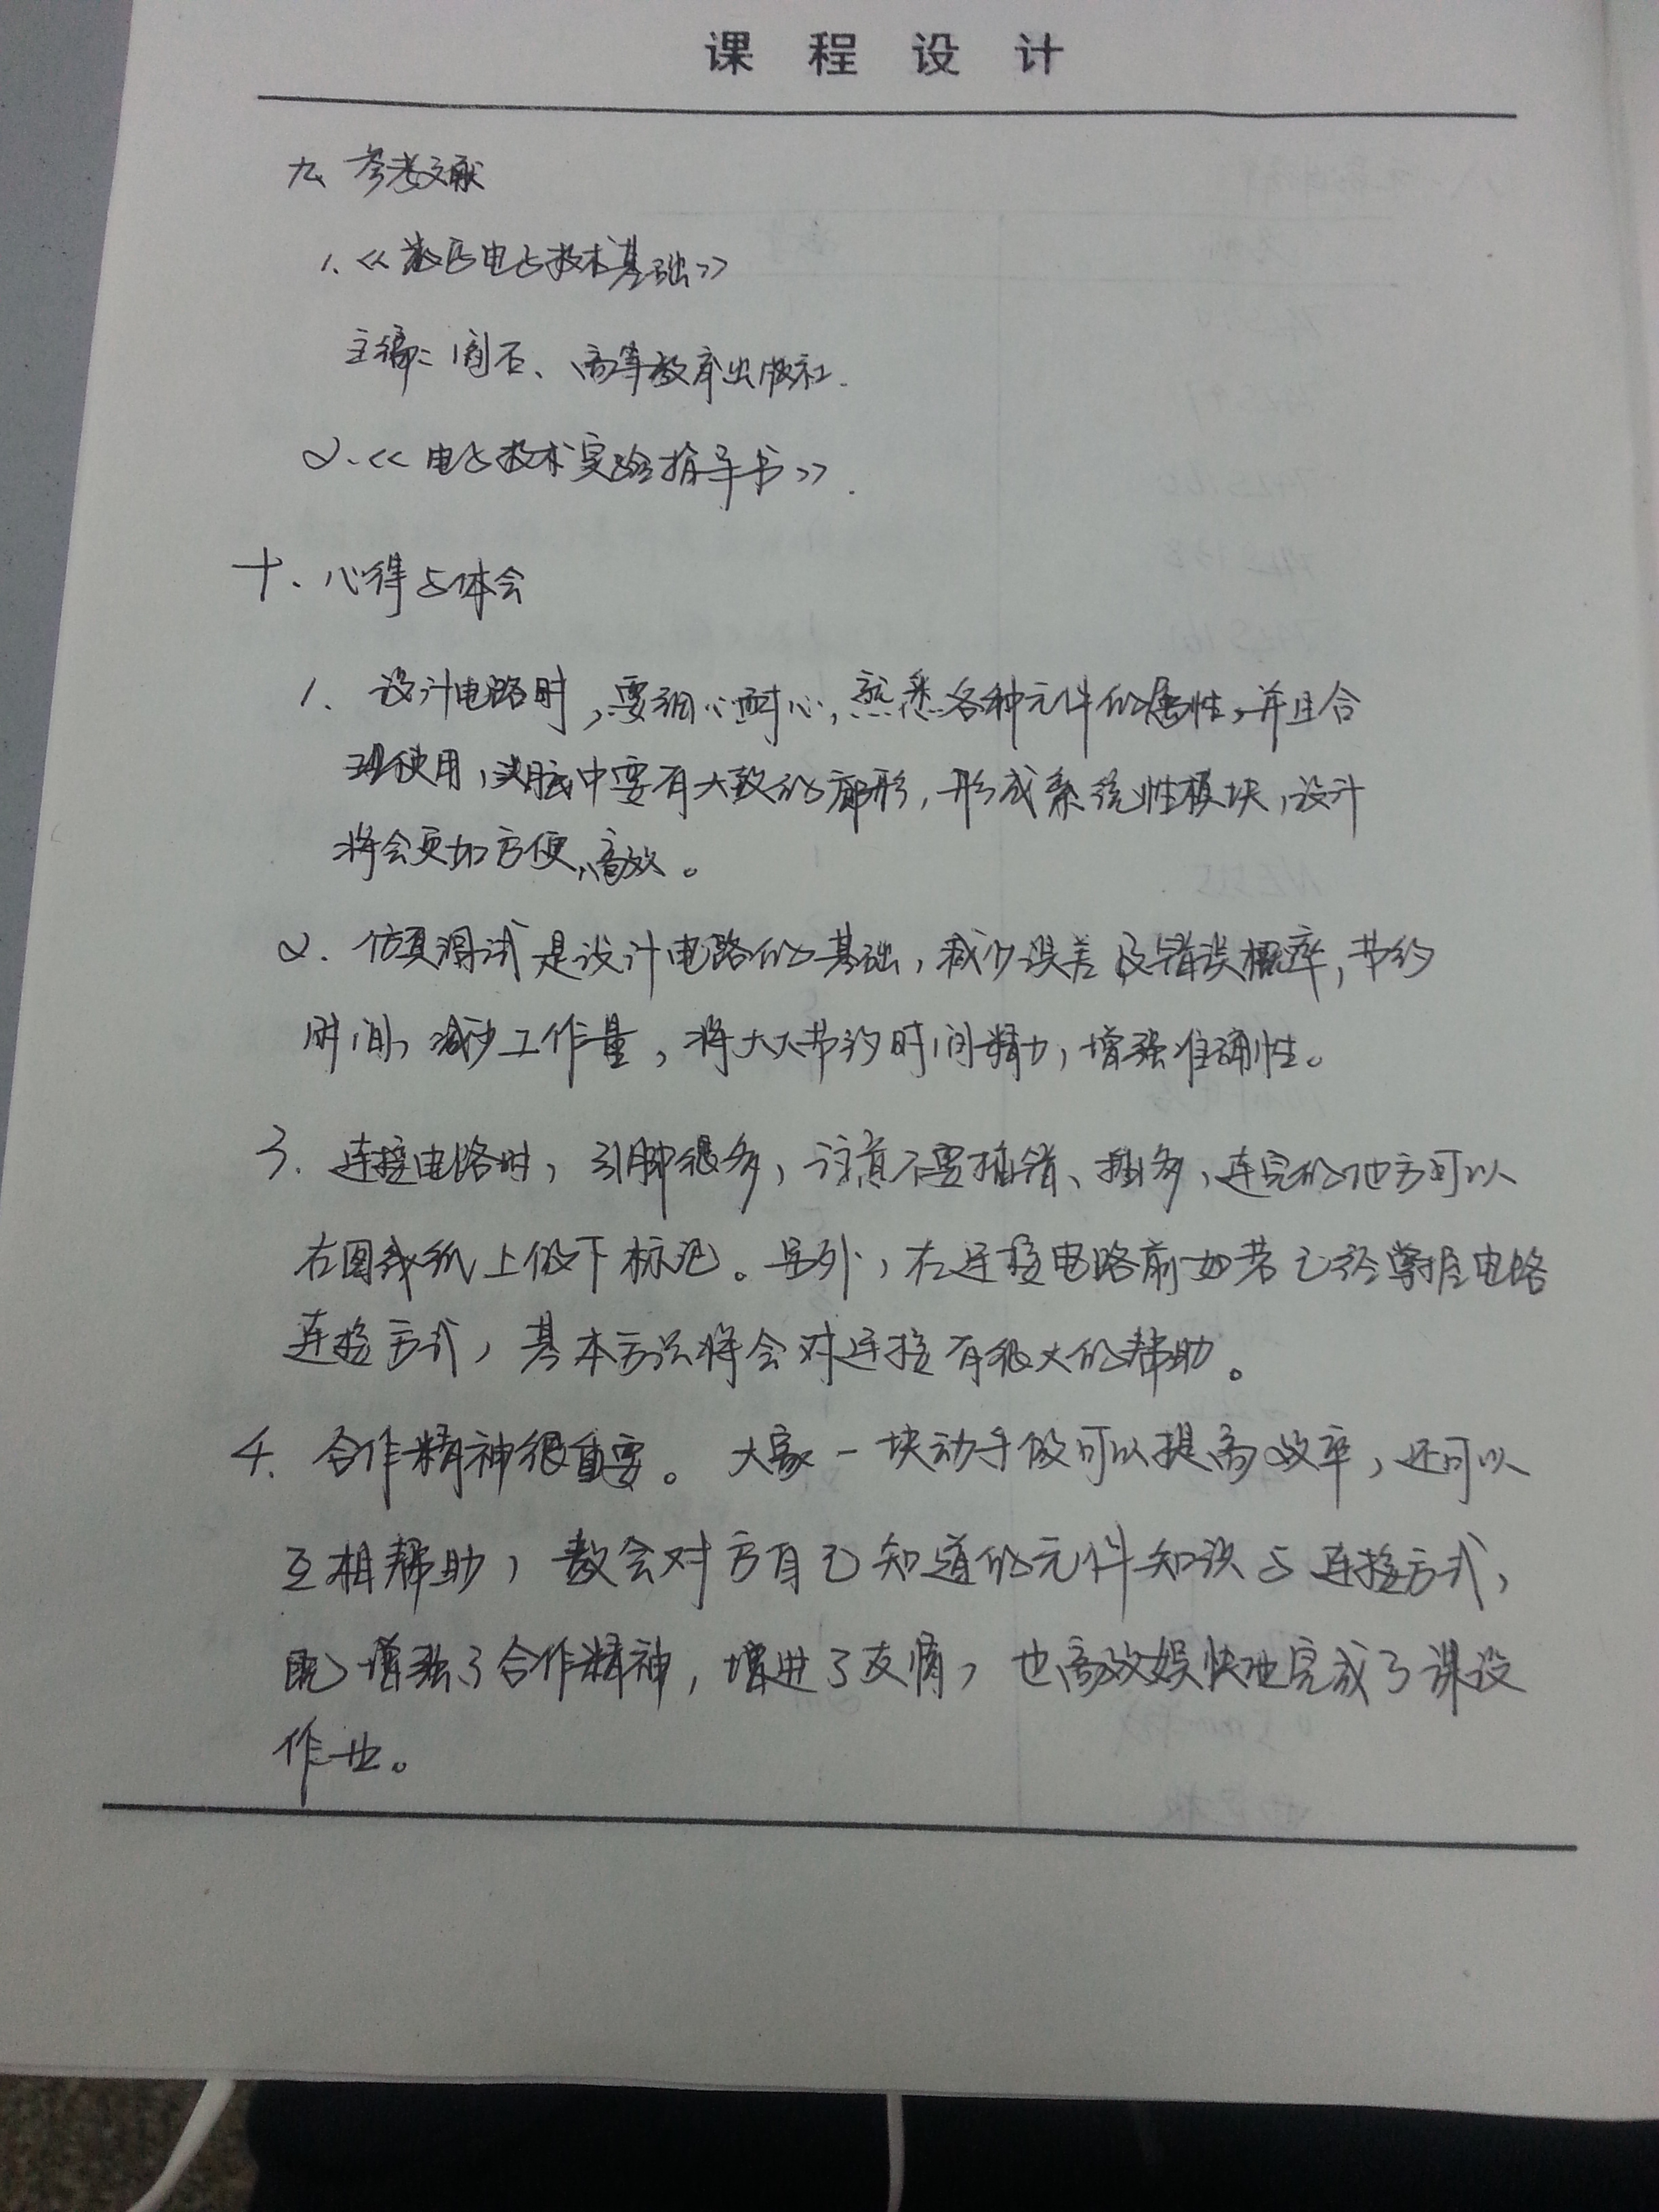 课程设计
九、参考文献
1、《数字电子技术基础》
主编：阎石、高等教育出版社.
2、《电子技术实验指导书》.
十、心得与体会
1、设计电路时，要细心耐心，熟悉各种元件的属性，并且合
理使用，头脑中要有大致的廓形，形成系统性模块，设计
将会更加方便、高效。
2、仿真测试是设计电路的基础，减少误差及错误概率，节约
时间，减少工作量，将大大节约时间精力，增强准确性。
3、连接电路时，引脚很多，注意不要插错、插多，连完的地方可以
在图纸上做下标记。另外，在连接电路前如若已经掌握电路
连接方式，基本方法将会对连接有很大的帮助。
4、合作精神很重要。大家一块动手做可以提高效率，还可以
互相帮助，教会对方自己知道的元件知识与连接方式，
既增强了合作精神，增进了友情，也高效娱快地完成了课设
作业。